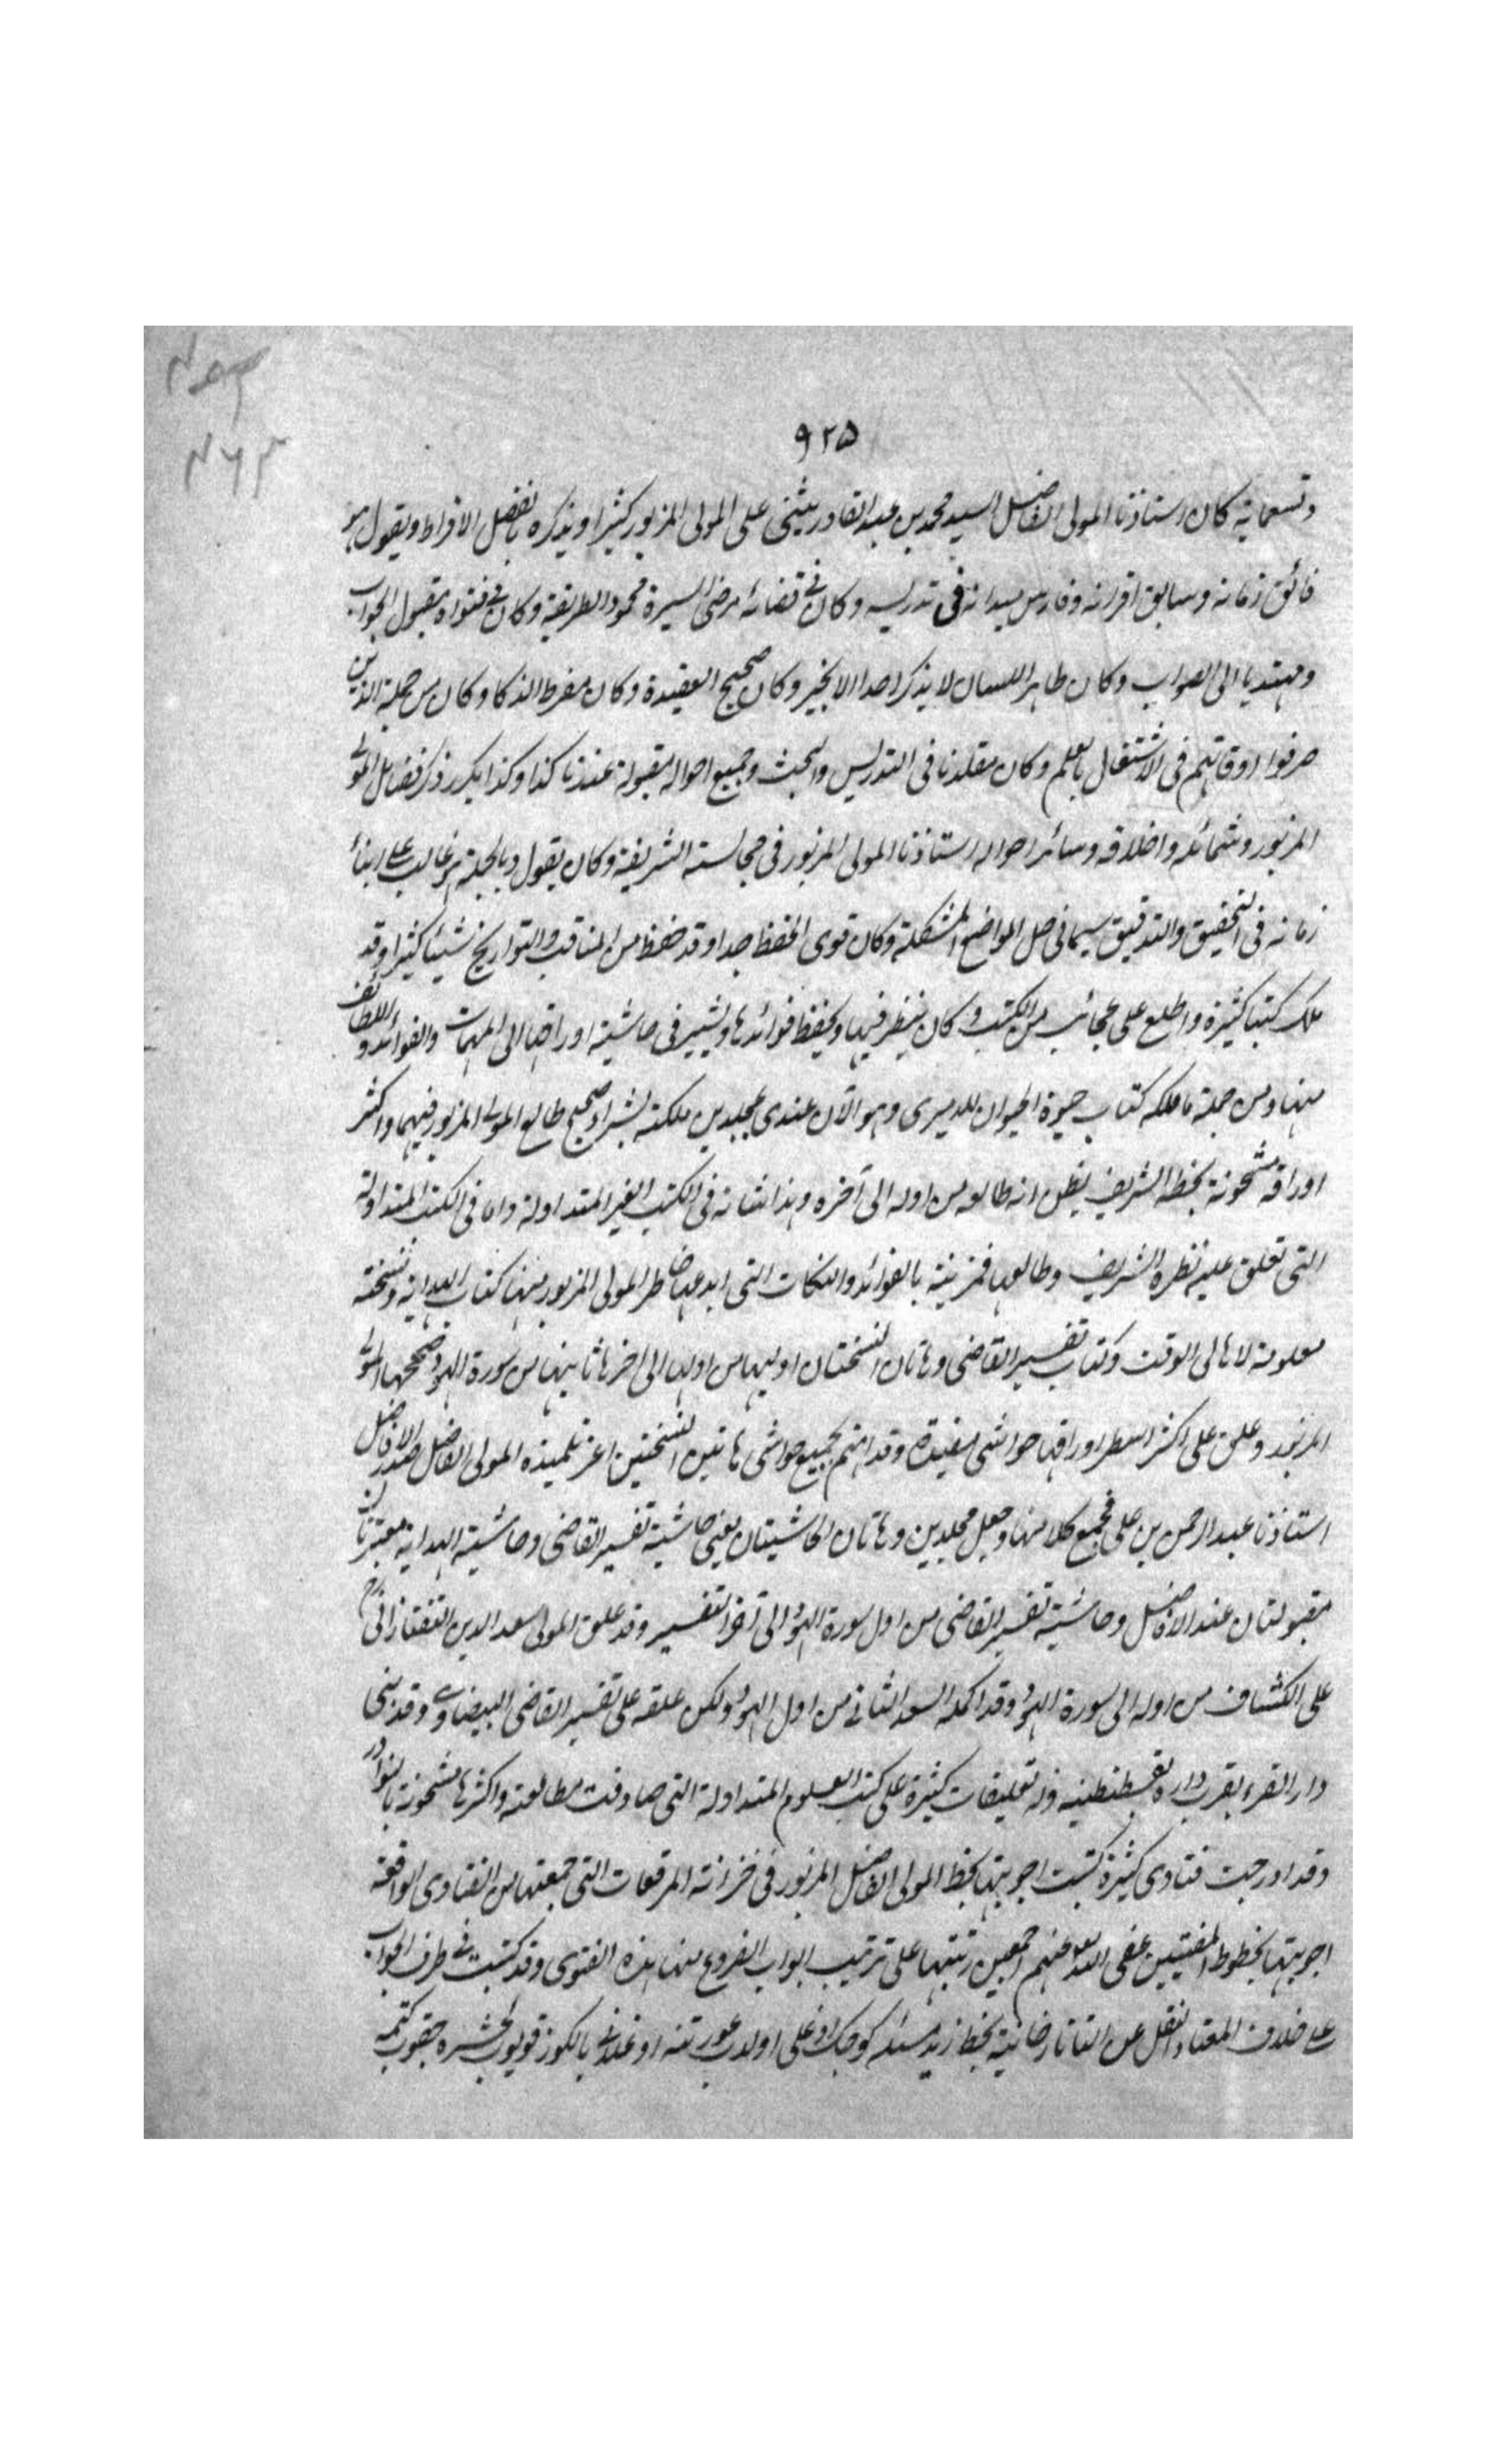 ٩٢٥
وتسعماية كان استاذنا المولى الفاضل السيد محمد بن عبد القادر يثنى على المولى المزبور كثيرا ويذكره بافضل الافراط ويقول هو
فائق زمانه وسابق اقرانه وفارس ميدانه فى تدريسه وكان فى قضائه مرضى السيرة محمود الطريقة وكان فى فتواه مقبول الجواب
ومهتديا الى الصواب وكان طاهر اللسان لا يذكر احدا الا بخير وكان صحيح العقيدة وكان مفرط الذكا وكان من جملة الذين
صرفوا اوقاتهم فى الاشتغال بالعلم وكان مقلدنا فى التدريس والبحث وجميع احواله مقبولة عندنا كذا وكذا يكرر ذكر فضائل المولى
المزبور وشمائله واخلاقه وسائر احواله استاذنا المولى المزبور فى مجالسته الشريفة وكان يقول وبالجملة هو غالب على ابناء
زمانه فى التحقيق والتدقيق سيما فى حل المواضع المشكلة وكان قوى الحفظ جدا وقد حفظ من المناقب والتواريخ شيئا كثيرا وقد
ملك كتبا كثيرة واطلع على عجائب من الكتب وكان ينظر فيها ويحفظ فوائدها ويشير فى حاشية اوراقها الى المهمات والفوائد واللطائف
منها ومن جملة ما ملكه كتاب حيوة الحيوان للدميرى وهو الآن عندى بمجلدين ملكته بشراء صحيح طالع المولى المزبور فيهما واكثر
اوراقه مشحونة بخطه الشريف يظن انه طالعه من اوله الى آخره وهذا شانه فى الكتب الغير المتداولة واما فى الكتب المتداولة
التى تعلق عليه نظره الشريف وطالعها فمزينة بالفوائد والنكات التى ابدعها خاطر المولى المزبور منها كتاب الهداية ونسخته
معلومة لاهالى الوقت وكتاب تفسير القاضى وهاتان النسختان اوليهما من اولها الى اخرها ثانيتها من سورة الهود صححها المولى
المزبور وعلق على اكثر اسطر اوراقها حواشى مفيدة وقد اهتم بجميع حواشى هاتين النسختين اعز تلميذه المولى الفاضل صدر الافاضل
استاذنا عبد الرحمن بن على فجمع كلا منها وجعل مجلدين وهاتان الحاشيتان يعنى حاشية تفسير القاضى وحاشية الهداية معتبرتان
مقبولتان عند الافاضل وحاشية تفسير القاضى من اول سورة الهود الى آخر التفسير وقد علق المولى سعد الدين التفتازانى
على الكشاف من اوله الى سورة الهود وقد اكمله السعد الثانى من اول الهود ولكن علقه على تفسير القاضى البيضاوى وقد بنى
دار القراء بقرب داره بقسطنطنيه وله تعليقات كثيرة على كتب العلوم المتداولة التى صادفت مطالعته واكثرها مشحونة بالنوادر
وقد اورجت فتاوى كثيرة كتبت اجوبتها بخط المولى الفاضل المزبور فى خزانة المرقعات التى جمعتها من الفتاوى الواقعة
اجوبتها بخطوط المفتيين عفى الله عنهم اجمعين رتبتها على ترتيب ابواب الفروع منها هذه الفتوى وقد كتبت فى طرف الجواب
على خلاف المعتاد النقل عن التاتارخانية بخط زيد مسئله كوجك اوغلى اولدب عورتنه اوغلانى بالكوز قويوب طشره چقوب